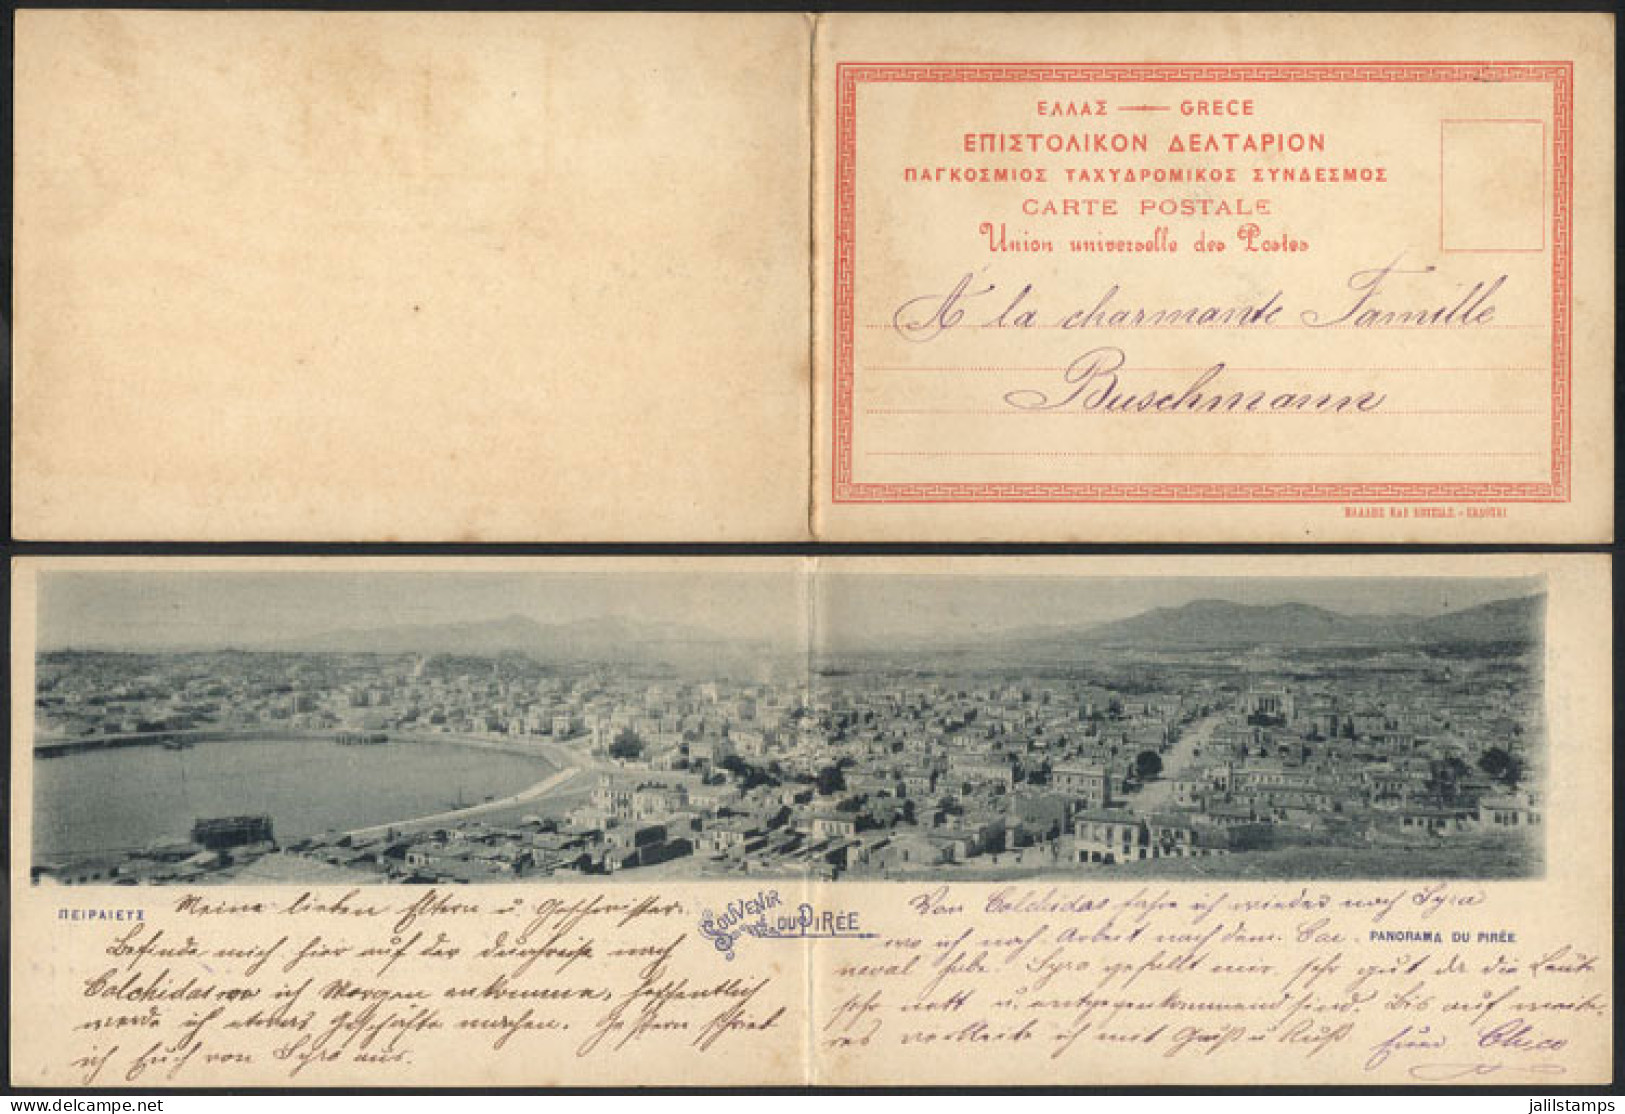 ΕΛΛΑΣ — GRECE
ΕΠΙΣΤΟΛΙΚΟΝ ΔΕΛΤΑΡΙΟΝ
ΠΑΓΚΟΣΜΙΟΣ ΤΑΧΥΔΡΟΜΙΚΟΣ ΣΥΝΔΕΣΜΟΣ
CARTE POSTALE
Union universelle des Postes
A la charmante Famille
Buschmann
ΠΕΙΡΑΙΕΥΣ
Meine lieben Eltern u. Geschwister.
Befinde mich hier auf der durchreise nach
Calchidas wo ich Morgen ankomme, hoffentlich
werde ich etwas Geschäfte machen. Gestern schrieb
ich Euch von Syra aus.
SOUVENIR DU PIRÉE
Von Calchidas fahre ich wieder nach Syra
wo ich noch Arbeit nach dem Car-
PANORAMA DU PIRÉE
neval habe. Syra gefällt mir sehr gut da die Leute
sehr nett u. entgegenkommend sind. Bis auf weite-
res verbleibe ich mit Gruß u Kuß Euer Chico
jalilstamps